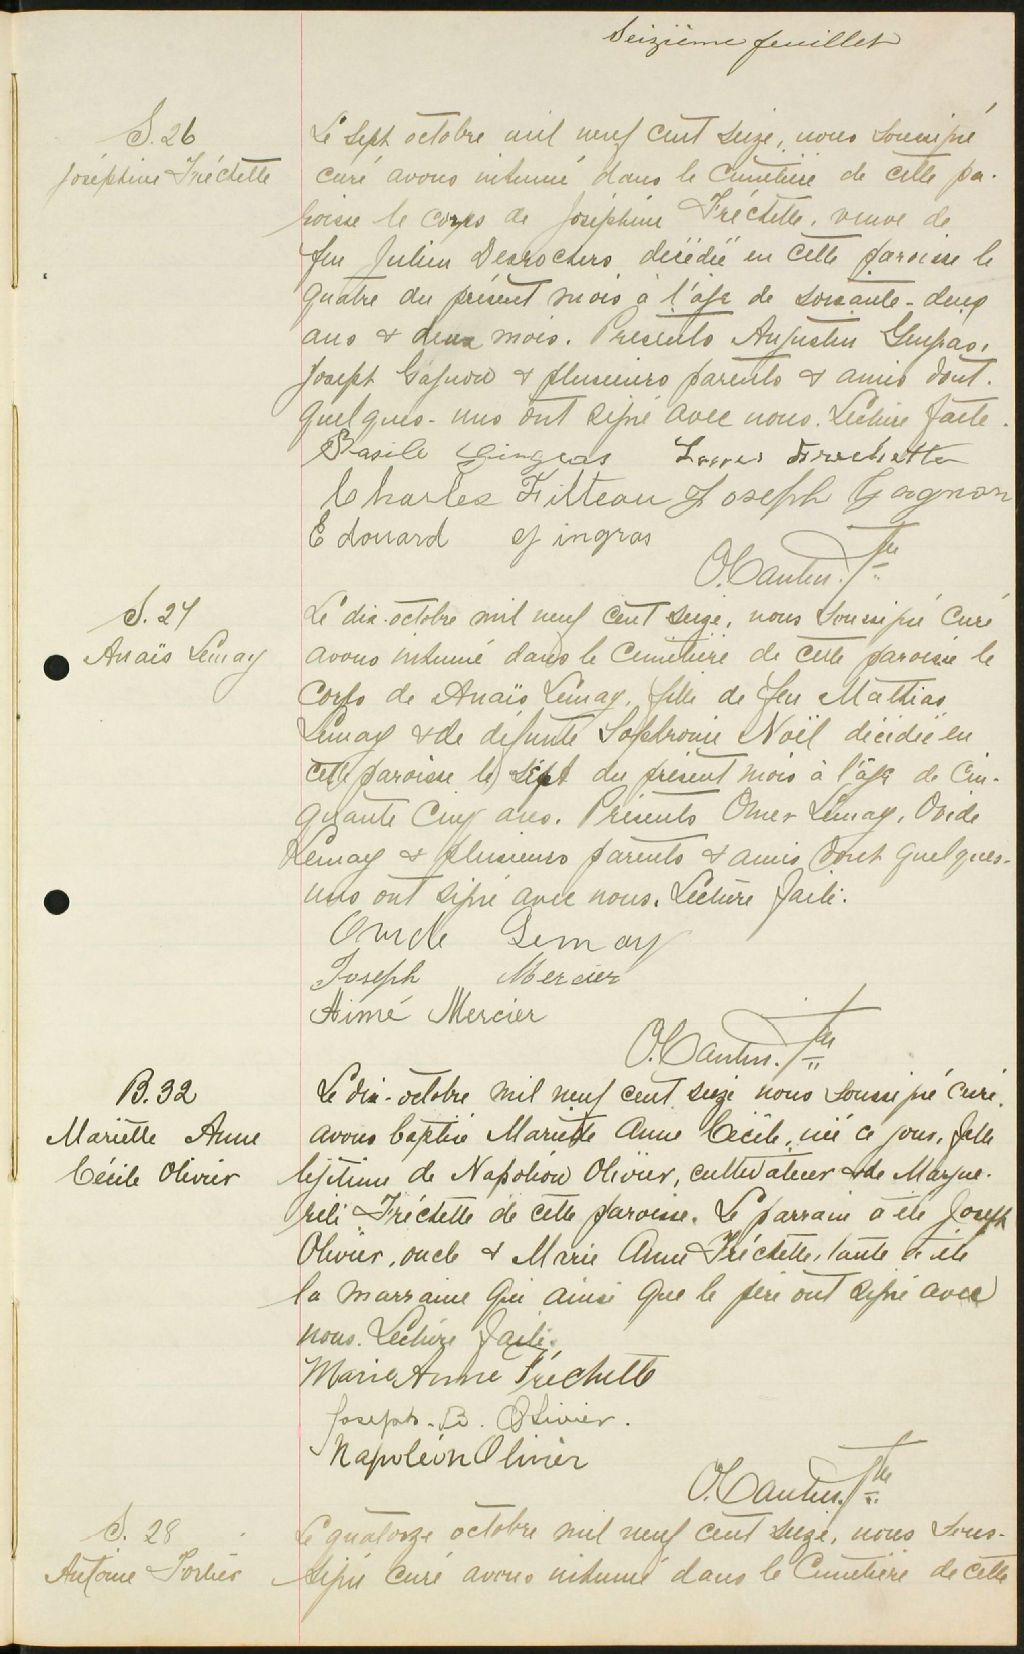 Seizième feuillet
S. 26
Joséphine Fréchette
Le sept octobre mil neuf cent seize, nous soussigné
curé avons inhumé dans le cimetière de cette pa-
roisse le corps de Joséphine Fréchette, veuve de
feu Julien Desrochers décédée en cette paroisse le
quatre du présent mois à l'âge de soixante-deux
ans & deux mois. Présents Augustin Gingras,
Joseph Gagnon & plusieurs parents & amis dont
quelques-uns ont signé avec nous. Lecture faite.
Basile Gingras Frechette
Charles Filteau Joseph Gagnon
Edouard gingras
O. Cantin. Ptre
S. 27
Anaïs Lemay
Le dix-octobre mil neuf cent seize, nous soussigné curé
avons inhumé dans le cimetière de cette paroisse le
corps de Anaïs Lemay, fille de feu Mathias
Lemay & de défunte Sophronie Noël décédée en
cette paroisse le sept du présent mois à l'âge de cin-
quante cinq ans. Présents Omer Lemay, Ovide
Lemay & plusieurs parents & amis dont quelques-
uns ont signé avec nous. Lecture faite.
Ovide Lemay
Joseph Mercier
Aimé Mercier
O. Cantin. Ptre
B. 32
Mariette Anne
Cécile Olivier
Le dix-octobre mil neuf cent seize nous soussigné curé,
avons baptisé Mariette Anne Cécile, née ce jour, fille
légitime de Napoléon Olivier, cultivateur & de Margue-
rite Fréchette de cette paroisse. Le parrain a été Joseph
Olivier, oncle & Marie Anne Fréchette, tante a été
la marraine qui ainsi que le père ont signé avec
nous. Lecture faite.
Marie Anne Fréchette
Joseph. B. Olivier.
Napoléon Olivier
O. Cantin. Ptre
S. 28
Antoine Fortier
Le quatorze octobre mil neuf cent seize, nous sous-
signé curé avons inhumé dans le cimetière de cette